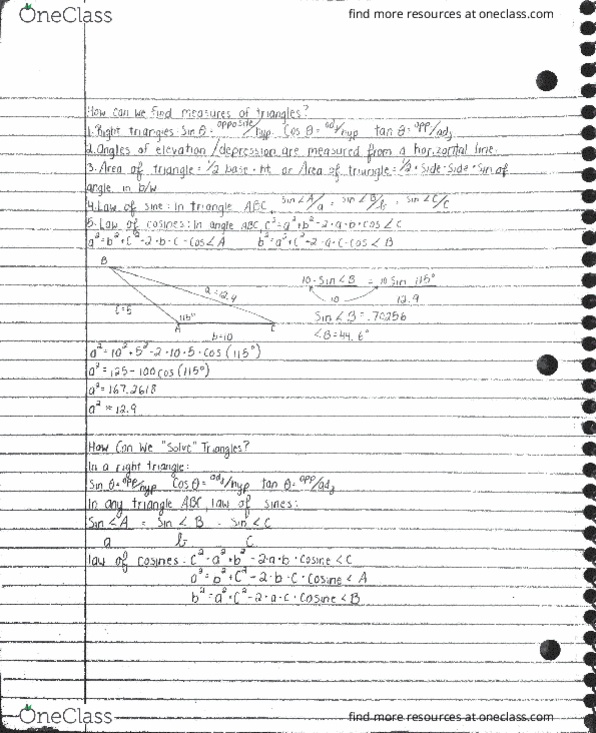 OneClass
find more resources at oneclass.com
How can we find measures of triangles?
1. Right triangles: Sin θ = opposite/hyp. Cos θ = adj/hyp tan θ = opp/adj
2. Angles of elevation/depression are measured from a horizontal line.
3. Area of triangle = 1/2 base · ht or Area of triangle = 1/2 · side · side · sin of
angle in b/w
4. Law of sine: in triangle ABC, sin∠A/a = sin∠B/b = sin∠C/c
5. Law of cosines: in angle ABC, c² = a² + b² - 2 · a · b · cos∠C
a² = b² + c² - 2 · b · c · cos∠A b² = a² + c² - 2 · a · c · cos∠B
B
a = 12.9
c = 5
115°
A
C
b = 10
10 · Sin∠B = 10 Sin 115°
10 12.9
Sin∠B = .70256
∠B = 44.6°
a² = 10² + 5² - 2 · 10 · 5 · cos (115°)
a² = 125 - 100 cos (115°)
a² = 167.2618
a² = 12.9
How Can We "Solve" Triangles?
In a right triangle:
Sin θ = opp/hyp Cos θ = adj/hyp tan θ = opp/adj
In any triangle ABC, law of sines:
Sin∠A = Sin∠B = Sin∠C
a b c
law of cosines: c² = a² + b² - 2 · a · b · cosine∠C
a² = b² + c² - 2 · b · c · cosine∠A
b² = a² + c² - 2 · a · c · cosine∠B
OneClass
find more resources at oneclass.com